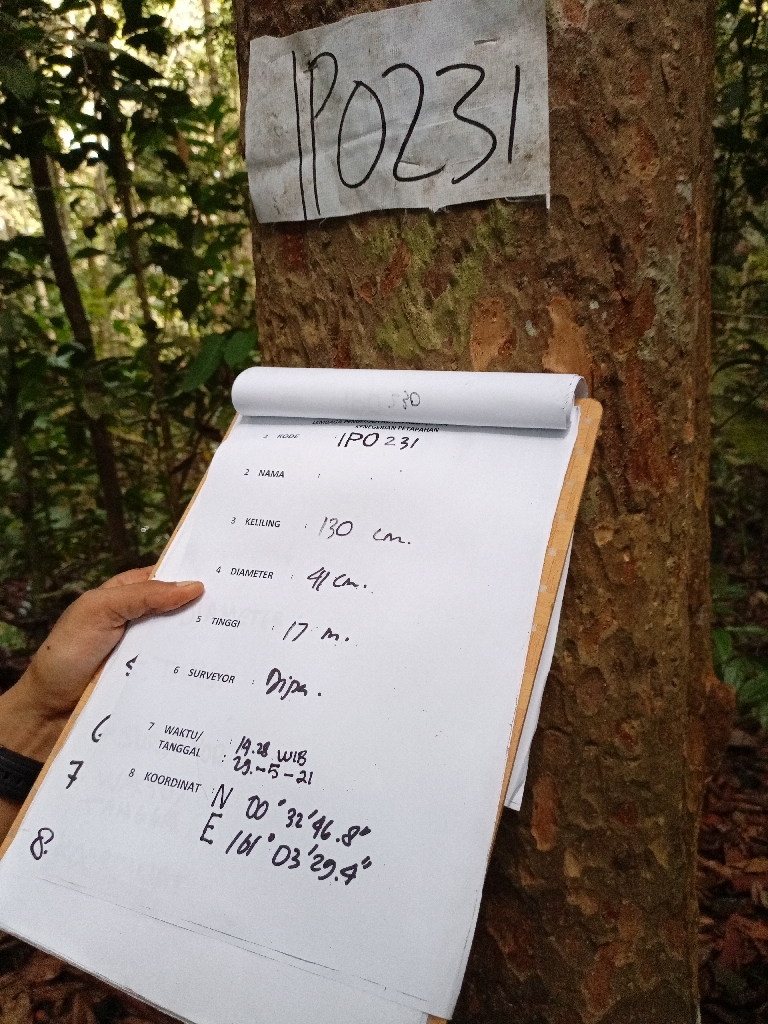 IPO231
30
KENEGERIAN PETAPAHAN
1 KODE IPO 231
2 NAMA :
3 KELILING : 130 cm.
4 DIAMETER : 41 cm.
5 TINGGI : 17 m.
6 SURVEYOR : Dipa.
7 WAKTU/ : 14.28 WIB
TANGGAL : 29-5-21
8 KOORDINAT : N 00°32'46.8"
E 101°03'29.4"
6
7
8.